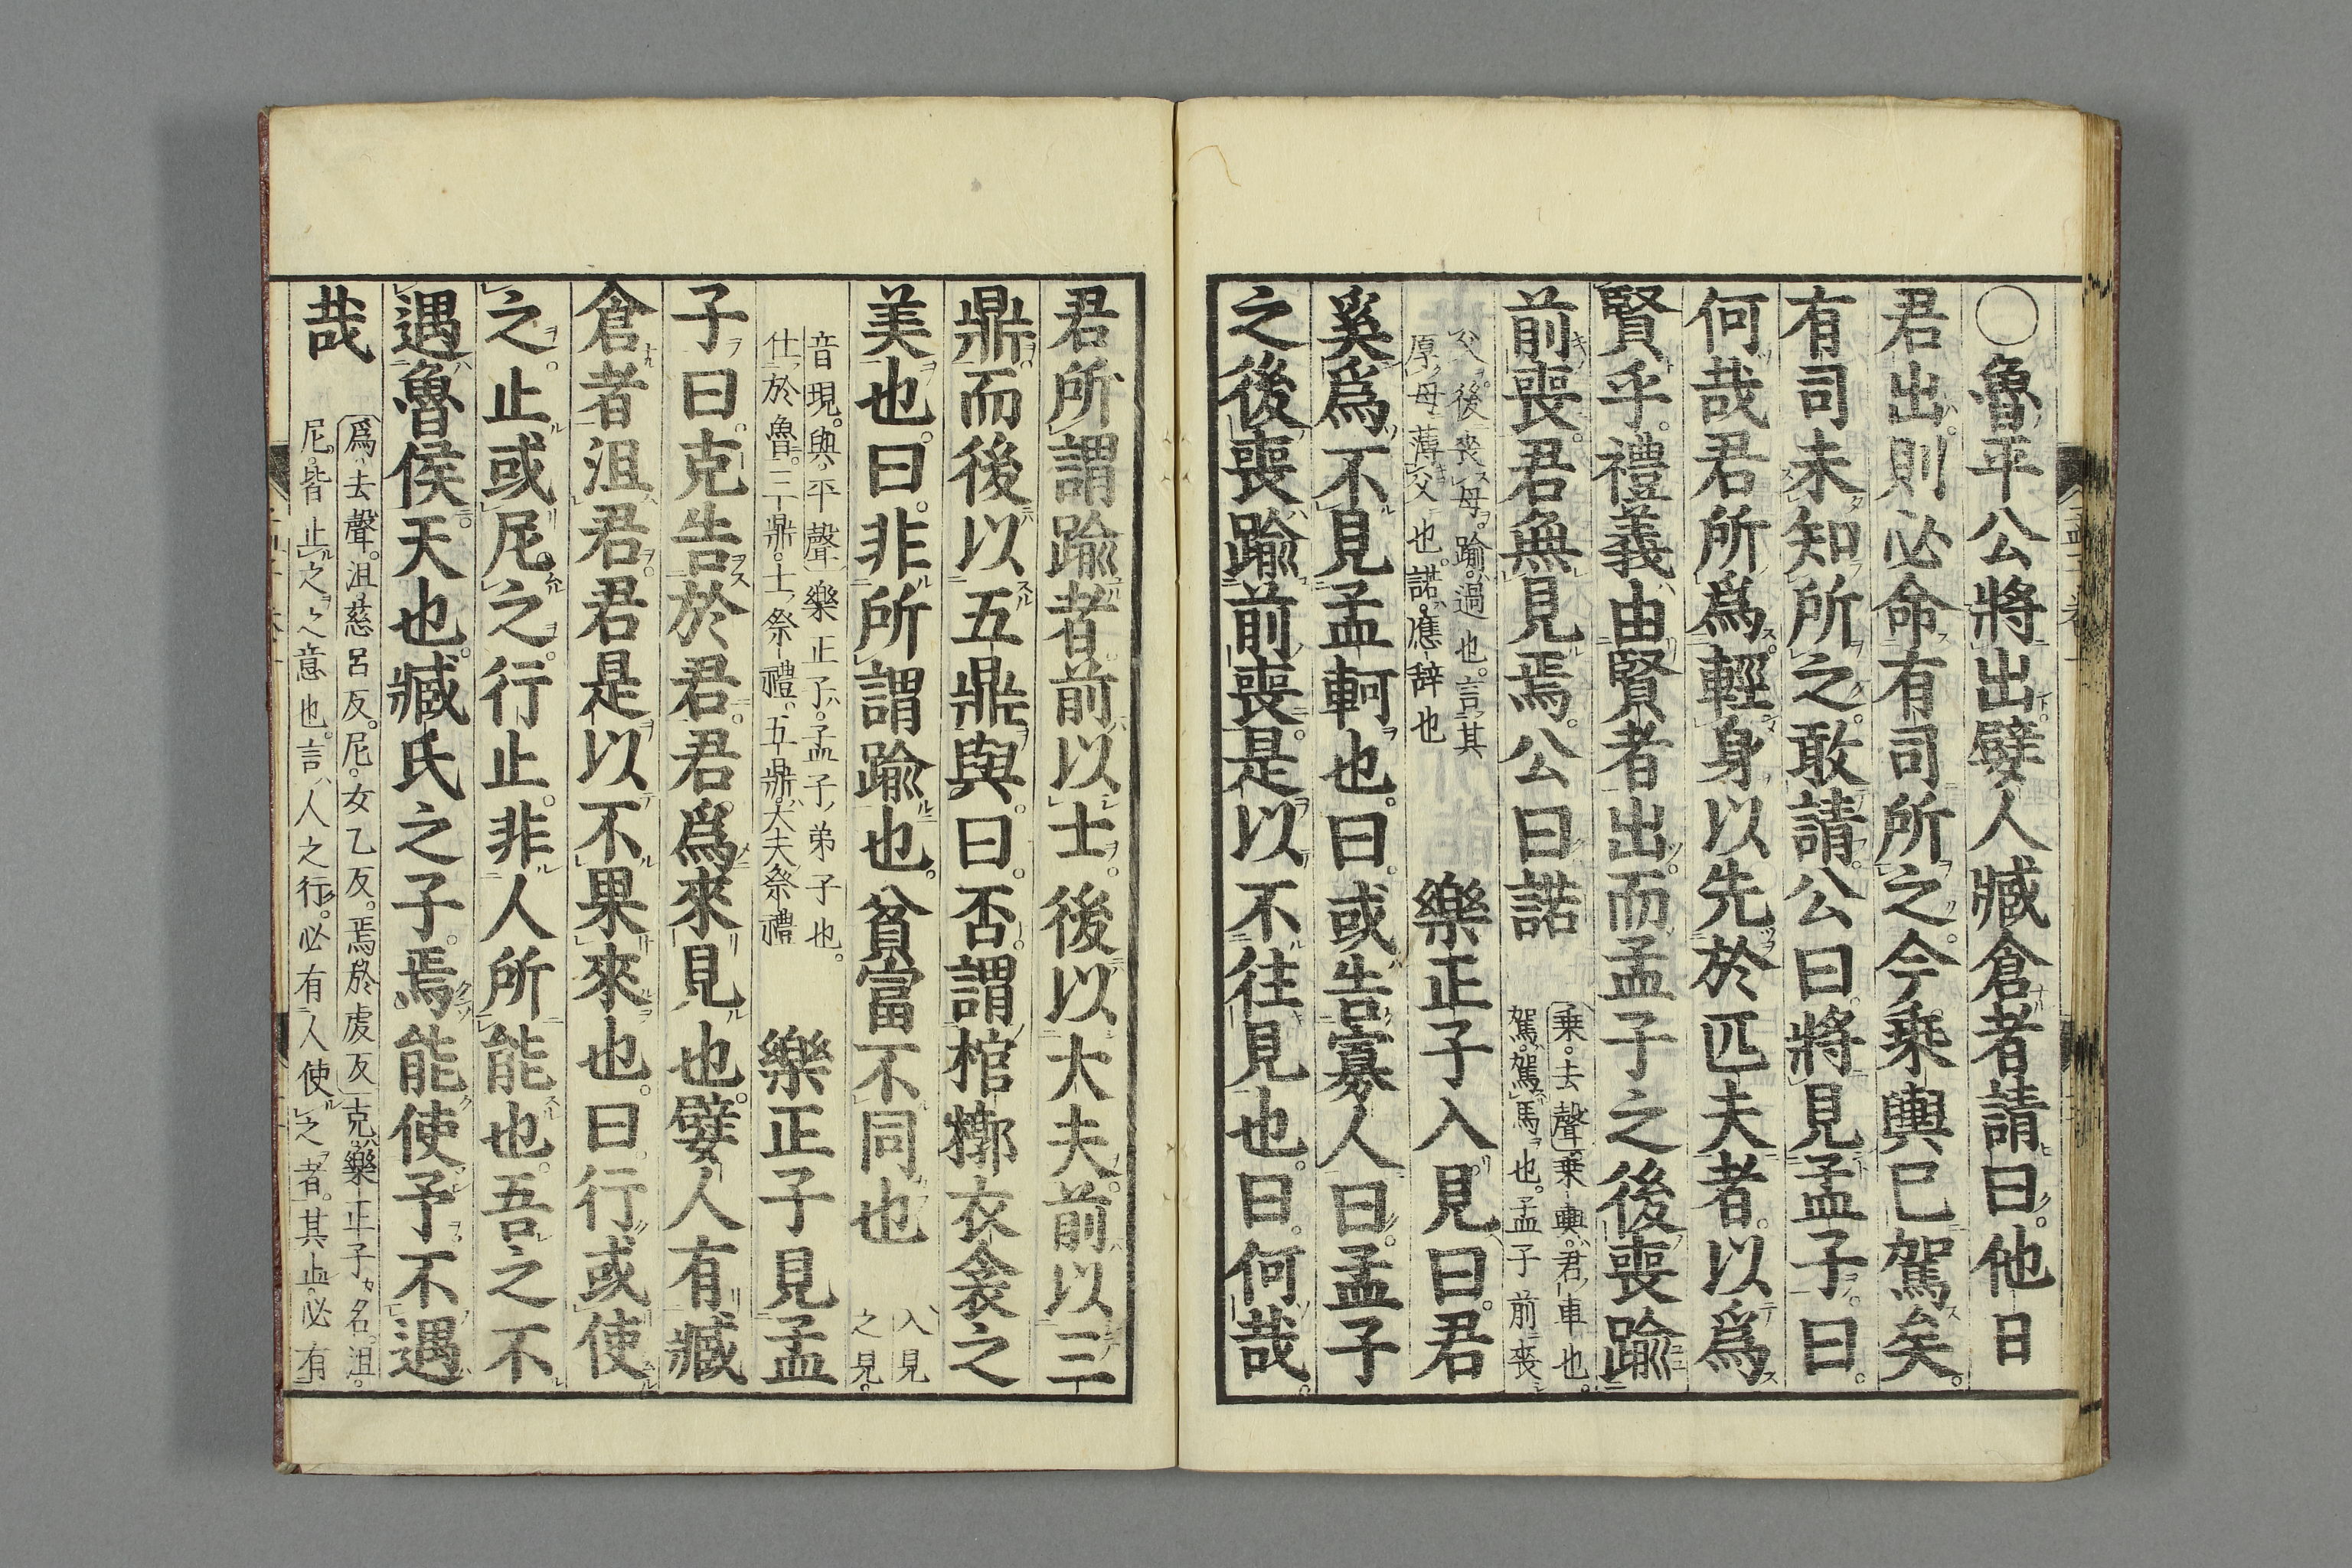 ○魯平公將出嬖人臧倉者請曰他日
君出則必命有司所之今乘輿已駕矣
有司未知所之敢請公曰將見孟子曰
何哉君所爲輕身以先於匹夫者以爲
賢乎禮義由賢者出而孟子之後喪踰
前喪君無見焉公曰諾
乘去聲乘輿君車也
駕駕馬也孟子前喪
父後喪母踰過也言其
厚母薄父也諾應辞也
樂正子入見曰君
奚爲不見孟軻也曰或告寡人曰孟子
之後喪踰前喪是以不往見也曰何哉
君所謂踰者前以士後以大夫前以三
鼎而後以五鼎與曰否謂棺椁衣衾之
美也曰非所謂踰也貧富不同也
入見
之見
音現與平聲樂正子孟子弟子也
仕於魯三鼎士祭禮五鼎大夫祭禮
樂正子見孟
子曰克告於君君爲來見也嬖人有臧
倉者沮君君是以不果來也曰行或使
之止或尼之行止非人所能也吾之不
遇魯侯天也臧氏之子焉能使予不遇
哉
爲去聲沮慈呂反尼女乙反焉於虔反克樂正子名沮
尼皆止之之意也言人之行必有人使之者其止必有